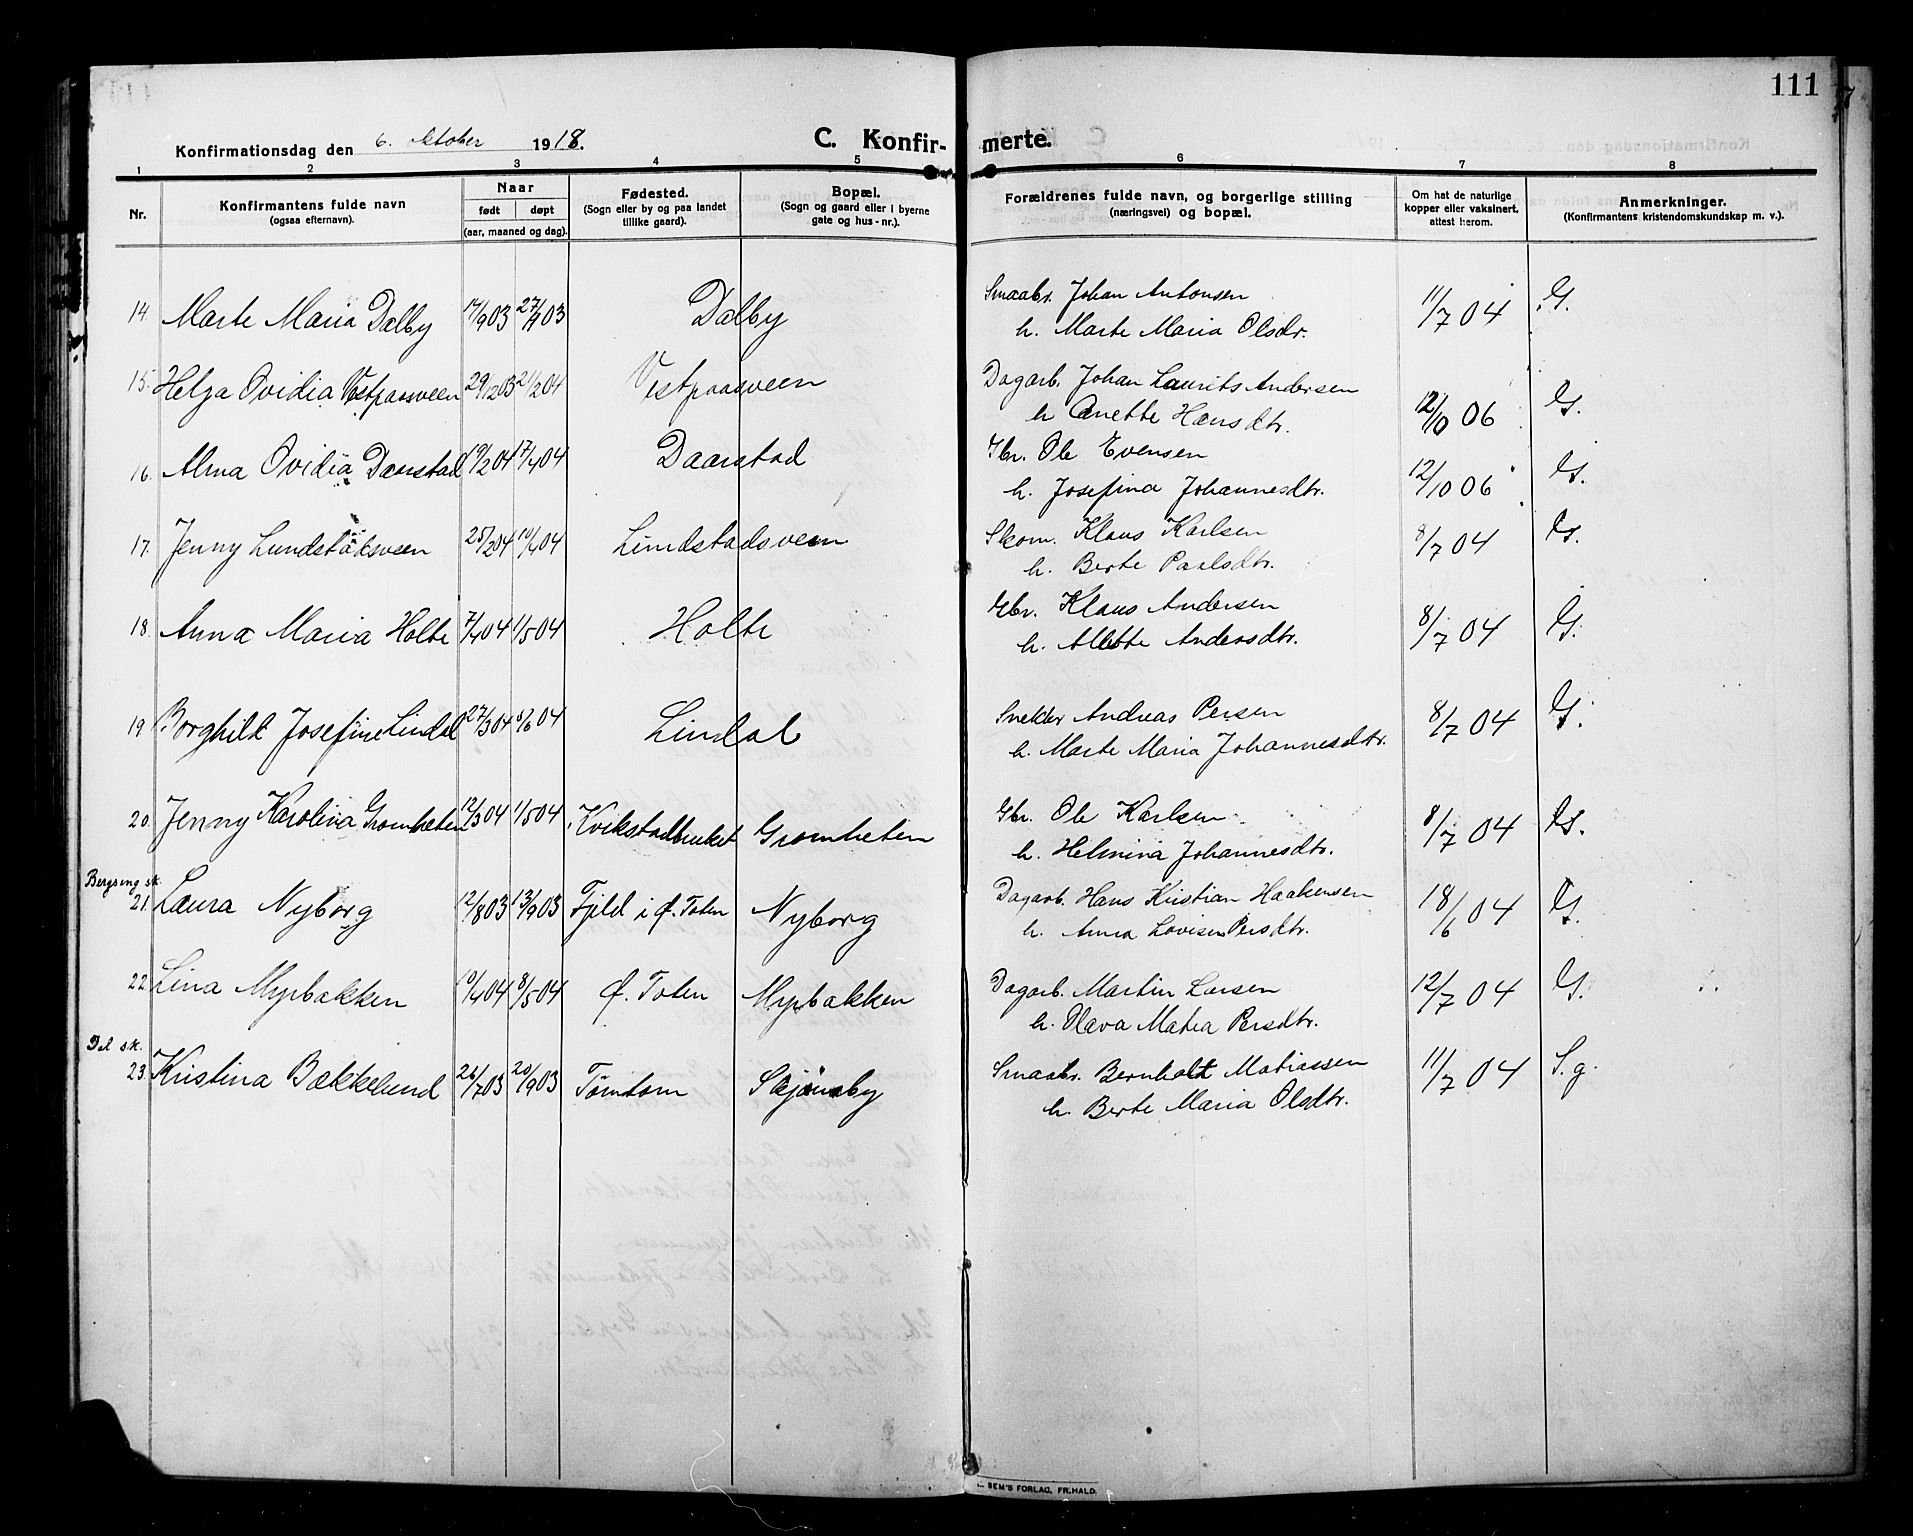 111
Konfirmationsdag den 6. oktober 1918.
C. Konfir- merte.
1 2 3 4 5 6 7 8
Nr.
Konfirmantens fulde navn
(ogsaa efternavn).
Naar
født døpt
(aar, maaned og dag).
Fødested.
(Sogn eller by og paa landet
tillike gaard).
Bopæl.
(Sogn og gaard eller i byerne
gate og hus-nr.).
Forældrenes fulde navn, og borgerlige stilling
(næringsvei) og bopæl.
Om hat de naturlige
kopper eller vaksinert,
attest herom.
Anmerkninger.
(Konfirmantens kristendomskundskap m. v.).
14. Marte Maria Dalby 17/9 03 27/9 03 Dalby Smaabr. Johan Antonsen 11/7 04 G.
h. Marte Maria Olsdr.
15. Helga Ovidia Vestpaasveen 29/12 03 21/2 04 Vestpaasveen Dagarb. Johan Laurits Andersen 12/10 06 G.
h Anette Hansdtr.
16. Alma Ovidia Daarstad 19/2 04 17/4 04 Daarstad Gbr. Ole Evensen 12/10 06 G.
h. Josefina Johannesdtr.
17. Jenny Lundstadsveen 25/2 04 10/4 04 Lundstadsveen Skom. Klaus Karlsen 8/7 04 G.
h. Berte Paulsdtr.
18. Anna Maria Holte 7/4 04 1/5 04 Holte Gbr. Klaus Andersen 8/7 04 G.
h. Allette Andersdtr.
19. Borghild Josefine Lindal 27/3 04 /6 04 Lindal Snekker Andreas Persen 8/7 04 G.
h. Marte Maria Johannesdtr.
20. Jenny Karolina Gromheten 12/3 04 1/5 04 Kvikstadbruket Gromheten Gbr. Ole Karlsen 8/7 04 G.
h. Helmina Johannesdtr.
Bergseng sk.
21. Laura Nyborg 12/8 03 13/9 03 Fjeld i Ø. Toten Nyborg Dagarb. Hans Kristian Haakensen 18/6 04 G.
h. Anna Lovise Persdtr.
22. Lina Myrbakken 10/4 04 8/5 04 Ø. Toten Myrbakken Dagarb. Martin Larsen 12/7 04 G.
h. Olava Matea Persdtr.
Dal sk.
23. Kristina Bækkelund 26/7 03 20/9 03 Tømtom Skjønsby Smaabr. Bernholt Matiassen 11/7 04 S.g.
h. Berte Maria Olsdtr.
SEM'S FORLAG, FR.HALD.